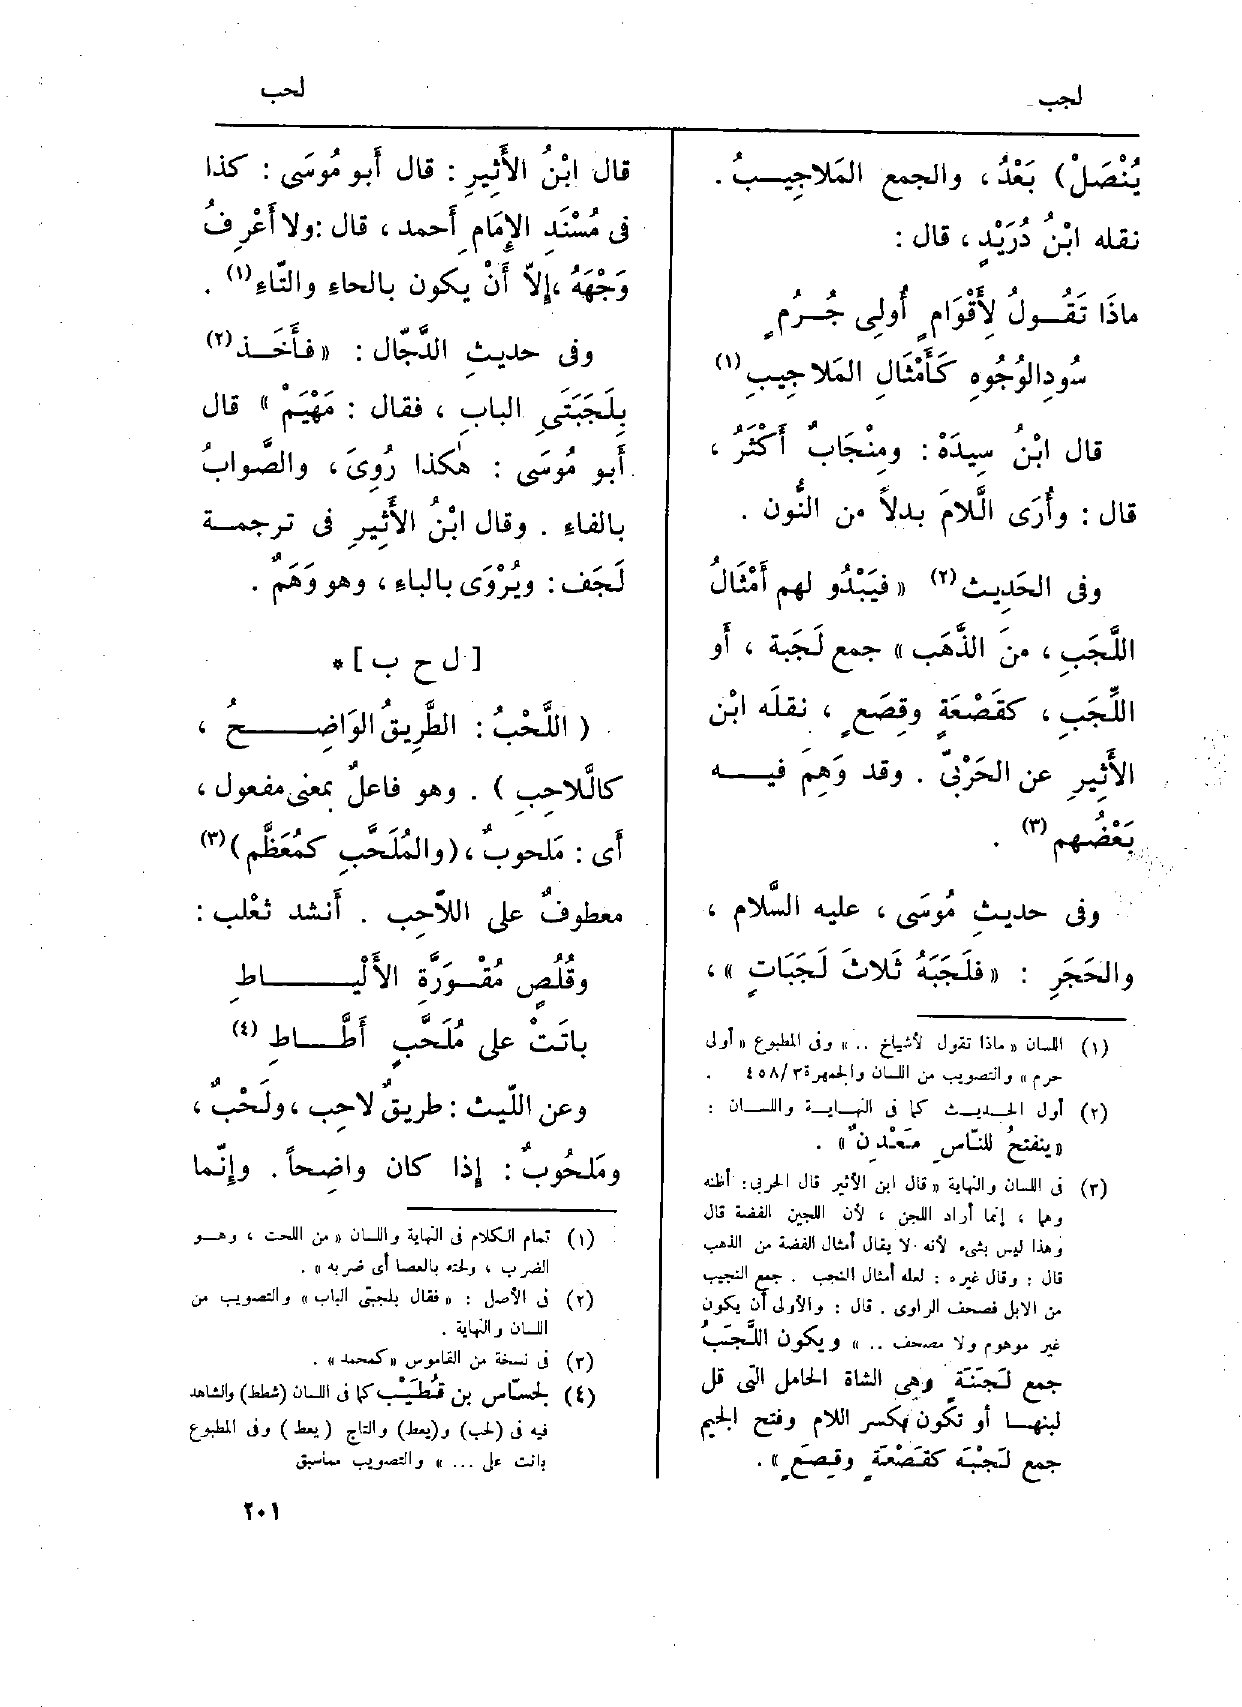 لجب
لحب
يُنْصَلْ) بَعْدُ ، والجمع المَلاجِيبُ .
نقله ابْنُ دُرَيْدٍ ، قال :
ماذَا تَقُولُ لِأَقْوَامٍ أُولِى جُرُمٍ
سُودِ الوُجُوهِ كَأَمْثَالِ المَلاجِيبِ (١)
قال ابْنُ سِيدَهْ : ومِنْجَابٌ أَكْثَرُ ،
قال : وأُرَى اللَّامَ بدلاً من النُّون .
وفى الحَدِيث (٢) « فيَبْدُو لهم أَمْثَالُ
اللَّجَبِ ، منَ الذَّهَب » جمع لَجَبة ، أَو
اللِّجَبِ ، كقَصْعَةٍ وقِصَعٍ ، نقلَه ابْن
الأَثِيرِ عن الحَرْبىّ . وقد وَهِمَ فيه
بَعْضُهم (٣) .
وفى حديثِ مُوسَى ، عليه السَّلام ،
والحَجَرِ : « فلَجَبَهُ ثَلاثَ لَجَبَاتٍ » ،
(١) اللسان « ماذا تقول لأشياخ .. » وفى المطبوع « أولى
حرم » والتصويب من اللسان والجمهرة ٣/ ٤٥٨ .
(٢) أول الحديث كما فى النهاية واللسان :
« ينفتحُ للنَّاسِ مَعْدِنٌ » .
(٣) فى اللسان والنهاية « قال ابن الأثير قال الحربى : أظنه
وهما ، إنما أراد اللجن ، لأن اللجين الفضة قال
وهذا ليس بشىء لأنه لا يقال أمثال الفضة من الذهب
قال : وقال غيره : لعله أمثال النجب . جمع النجيب
من الابل فصحف الراوى . قال : والأولى أن يكون
غير موهوم ولا مصحف .. » ويكون اللَّجَبُ
جمع لَجَبَةٍ وهى الشاة الحامل التى قل
لبنها أو تكون بكسر اللام وفتح الجيم
جمع لَجْبَة كقَصْعَةٍ وقِصَعٍ » .
قال ابْنُ الأَثِيرِ : قال أَبو مُوسَى : كذا
فى مُسْنَدِ الإِمَامِ أَحمد ، قال : ولا أَعْرِفُ
وَجْهَهُ ، إِلاّ أَنْ يكون بالحاءِ والتّاءِ (١) .
وفى حديثِ الدَّجّال : « فأَخَذ (٢)
بِلَجَبَتَىِ الباب ، فقال : مَهْيَمْ » قال
أَبو مُوسَى : هٰكذا رُوِىَ ، والصَّوابُ
بالفاءِ . وقال ابْنُ الأَثِيرِ فى ترجمة
لَجَف : ويُرْوَى بالباءِ ، وهو وَهَمٌ .
[ ل ح ب ] *
( اللَّحْبُ : الطَّرِيقُ الوَاضِحُ ،
كالَّلاحِبِ ) . وهو فاعلٌ بمعنى مفعول ،
أَى : مَلحوبٌ ، (والمُلَحَّبِ كمُعَظَّم) (٣)
معطوفٌ على اللاّحِب . أَنشد ثعْلب :
وقُلُصٍ مُقْوَرَّةِ الأَلْيَاطِ
باتَتْ على مُلَحَّبٍ أَطَّاطِ (٤)
وعن اللّيث : طريقٌ لاحِب ، ولَحْبٌ ،
ومَلحُوبٌ : إِذا كان واضِحاً . وإِنّما
(١) تمام الكلام فى النهاية واللسان « من اللحت ، وهو
الضرب ، ولحته بالعصا أى ضربه » .
(٢) فى الأصل : « فقال بلجبتى الباب » والتصويب من
اللسان والنهاية .
(٣) فى نسخة من القاموس « كمحمد » .
(٤) لجسّاس بن قُطَيْب كما فى اللسان (شطط) والشاهد
فيه فى (لحب) و(يعط) والتاج (يعط) وفى المطبوع
بانت على ... » والتصويب مماسبق
٢٠١